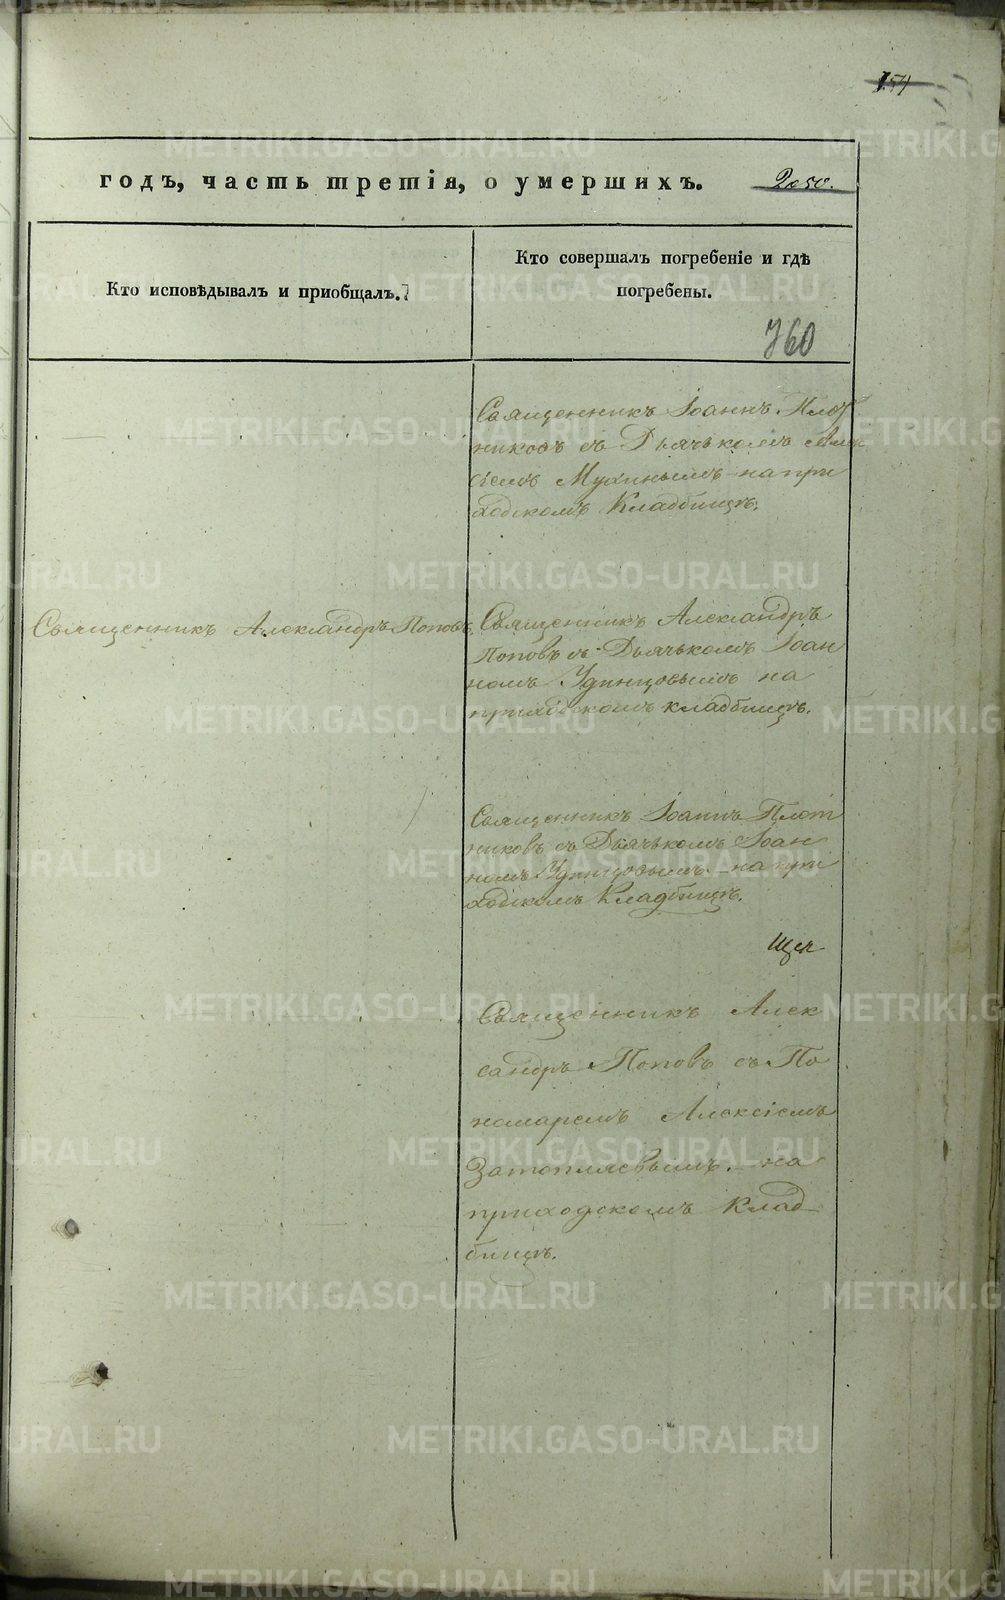 154
годъ, часть третія, о умершихъ.
Кто исповѣдывалъ и пріобщалъ.
Кто совершалъ погребеніе и гдѣ
погребены.
760
Священникъ Іоаннъ Плот
никовъ съ Дьячькомъ Алек
сіемъ Мухинымъ на при
ходскомъ Кладбищѣ.
Священникъ Александръ Поповъ
Священникъ Александръ
Поповъ съ Дьячькомъ Іоан
номъ Удинцовымъ на
приходскомъ кладбищѣ.
Священникъ Іоаннъ Плот
никовъ съ Дьячькомъ Іоан
номъ Удинцовымъ на при
ходскомъ Кладбищѣ.
Священникъ Алек
сандръ Поповъ съ По
номаремъ Алексіемъ
Затопляевымъ на
приходскомъ Клад
бищѣ.
METRIKI.GASO-URAL.RU